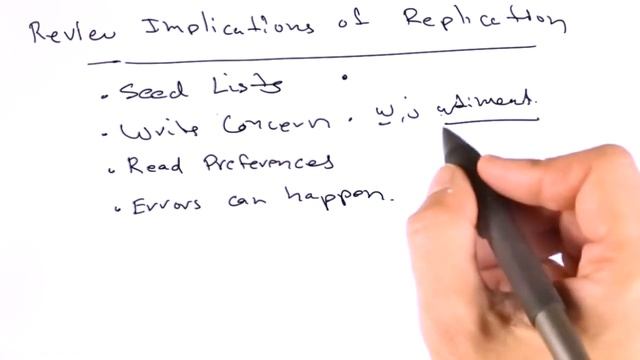 Review Implications of Replication
• Seed Lists •
• Write Concern • w, j wtimeout.
• Read Preferences
• Errors can happen.